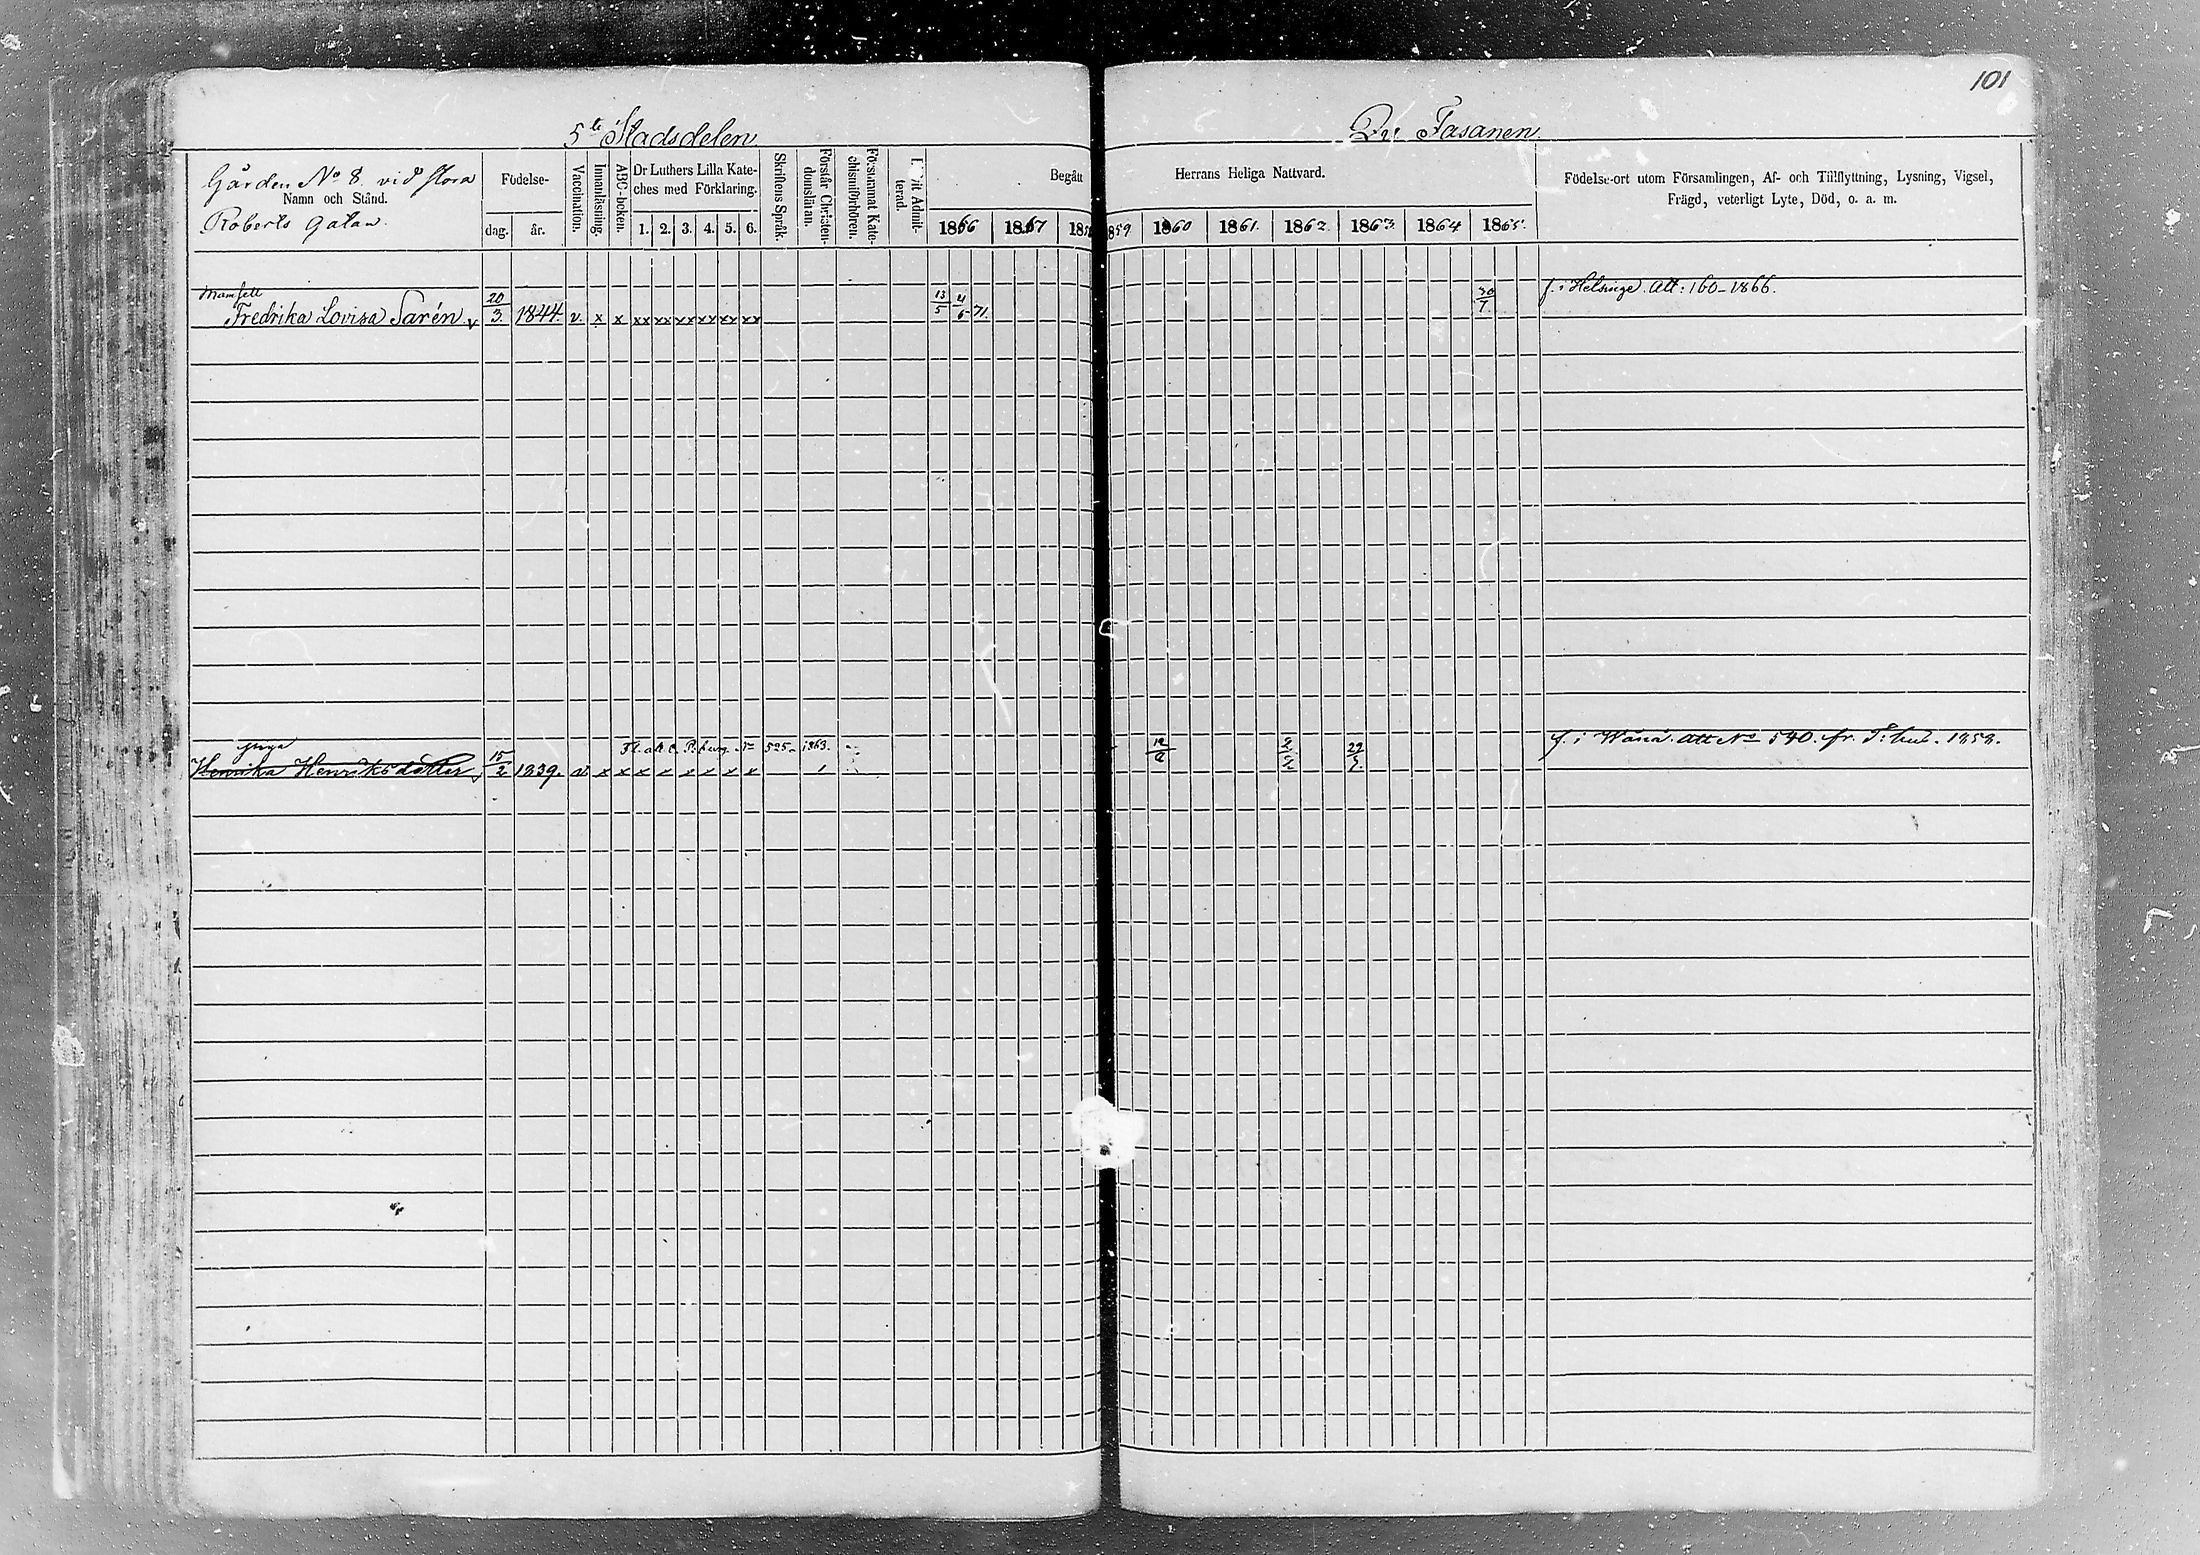 101
5te Stadsdelen
Qv. Fasanen
Gården No 8. vid Stora
Namn och Stånd.
Roberts Gatan.
Födelse-
dag. år.
Vaccination.
Innanläsning.
ABC-boken.
Dr Luthers Lilla Kate-
ches med Förklaring.
1. 2. 3. 4. 5. 6.
Skriftens Språk.
Förstår Christen-
domsläran.
Försummat Kate-
chismiförhören.
terad.
Begått
Herrans Heliga Nattvard.
1866 1867 185 859 1860 1861. 1862. 1863. 1864 1865.
Födelse-ort utom Församlingen, Af- och Tillflyttning, Lysning, Vigsel,
Frägd, veterligt Lyte, Död, o. a. m.
Mamsell
Fredrika Lovisa Sarén. v 20/3. 1844. v. x x xx xx xx xx xx xx 13/5 4/6 71. 30/7. f. i Helsinge. Att: 160-1866.
Piga
Henrika Henriksdotter 15/2 1839. v. x x x x x x x x 525. 1863. 2/2 29/7. f. i Wånå. Att No 540. fr. T:hus. 1858.